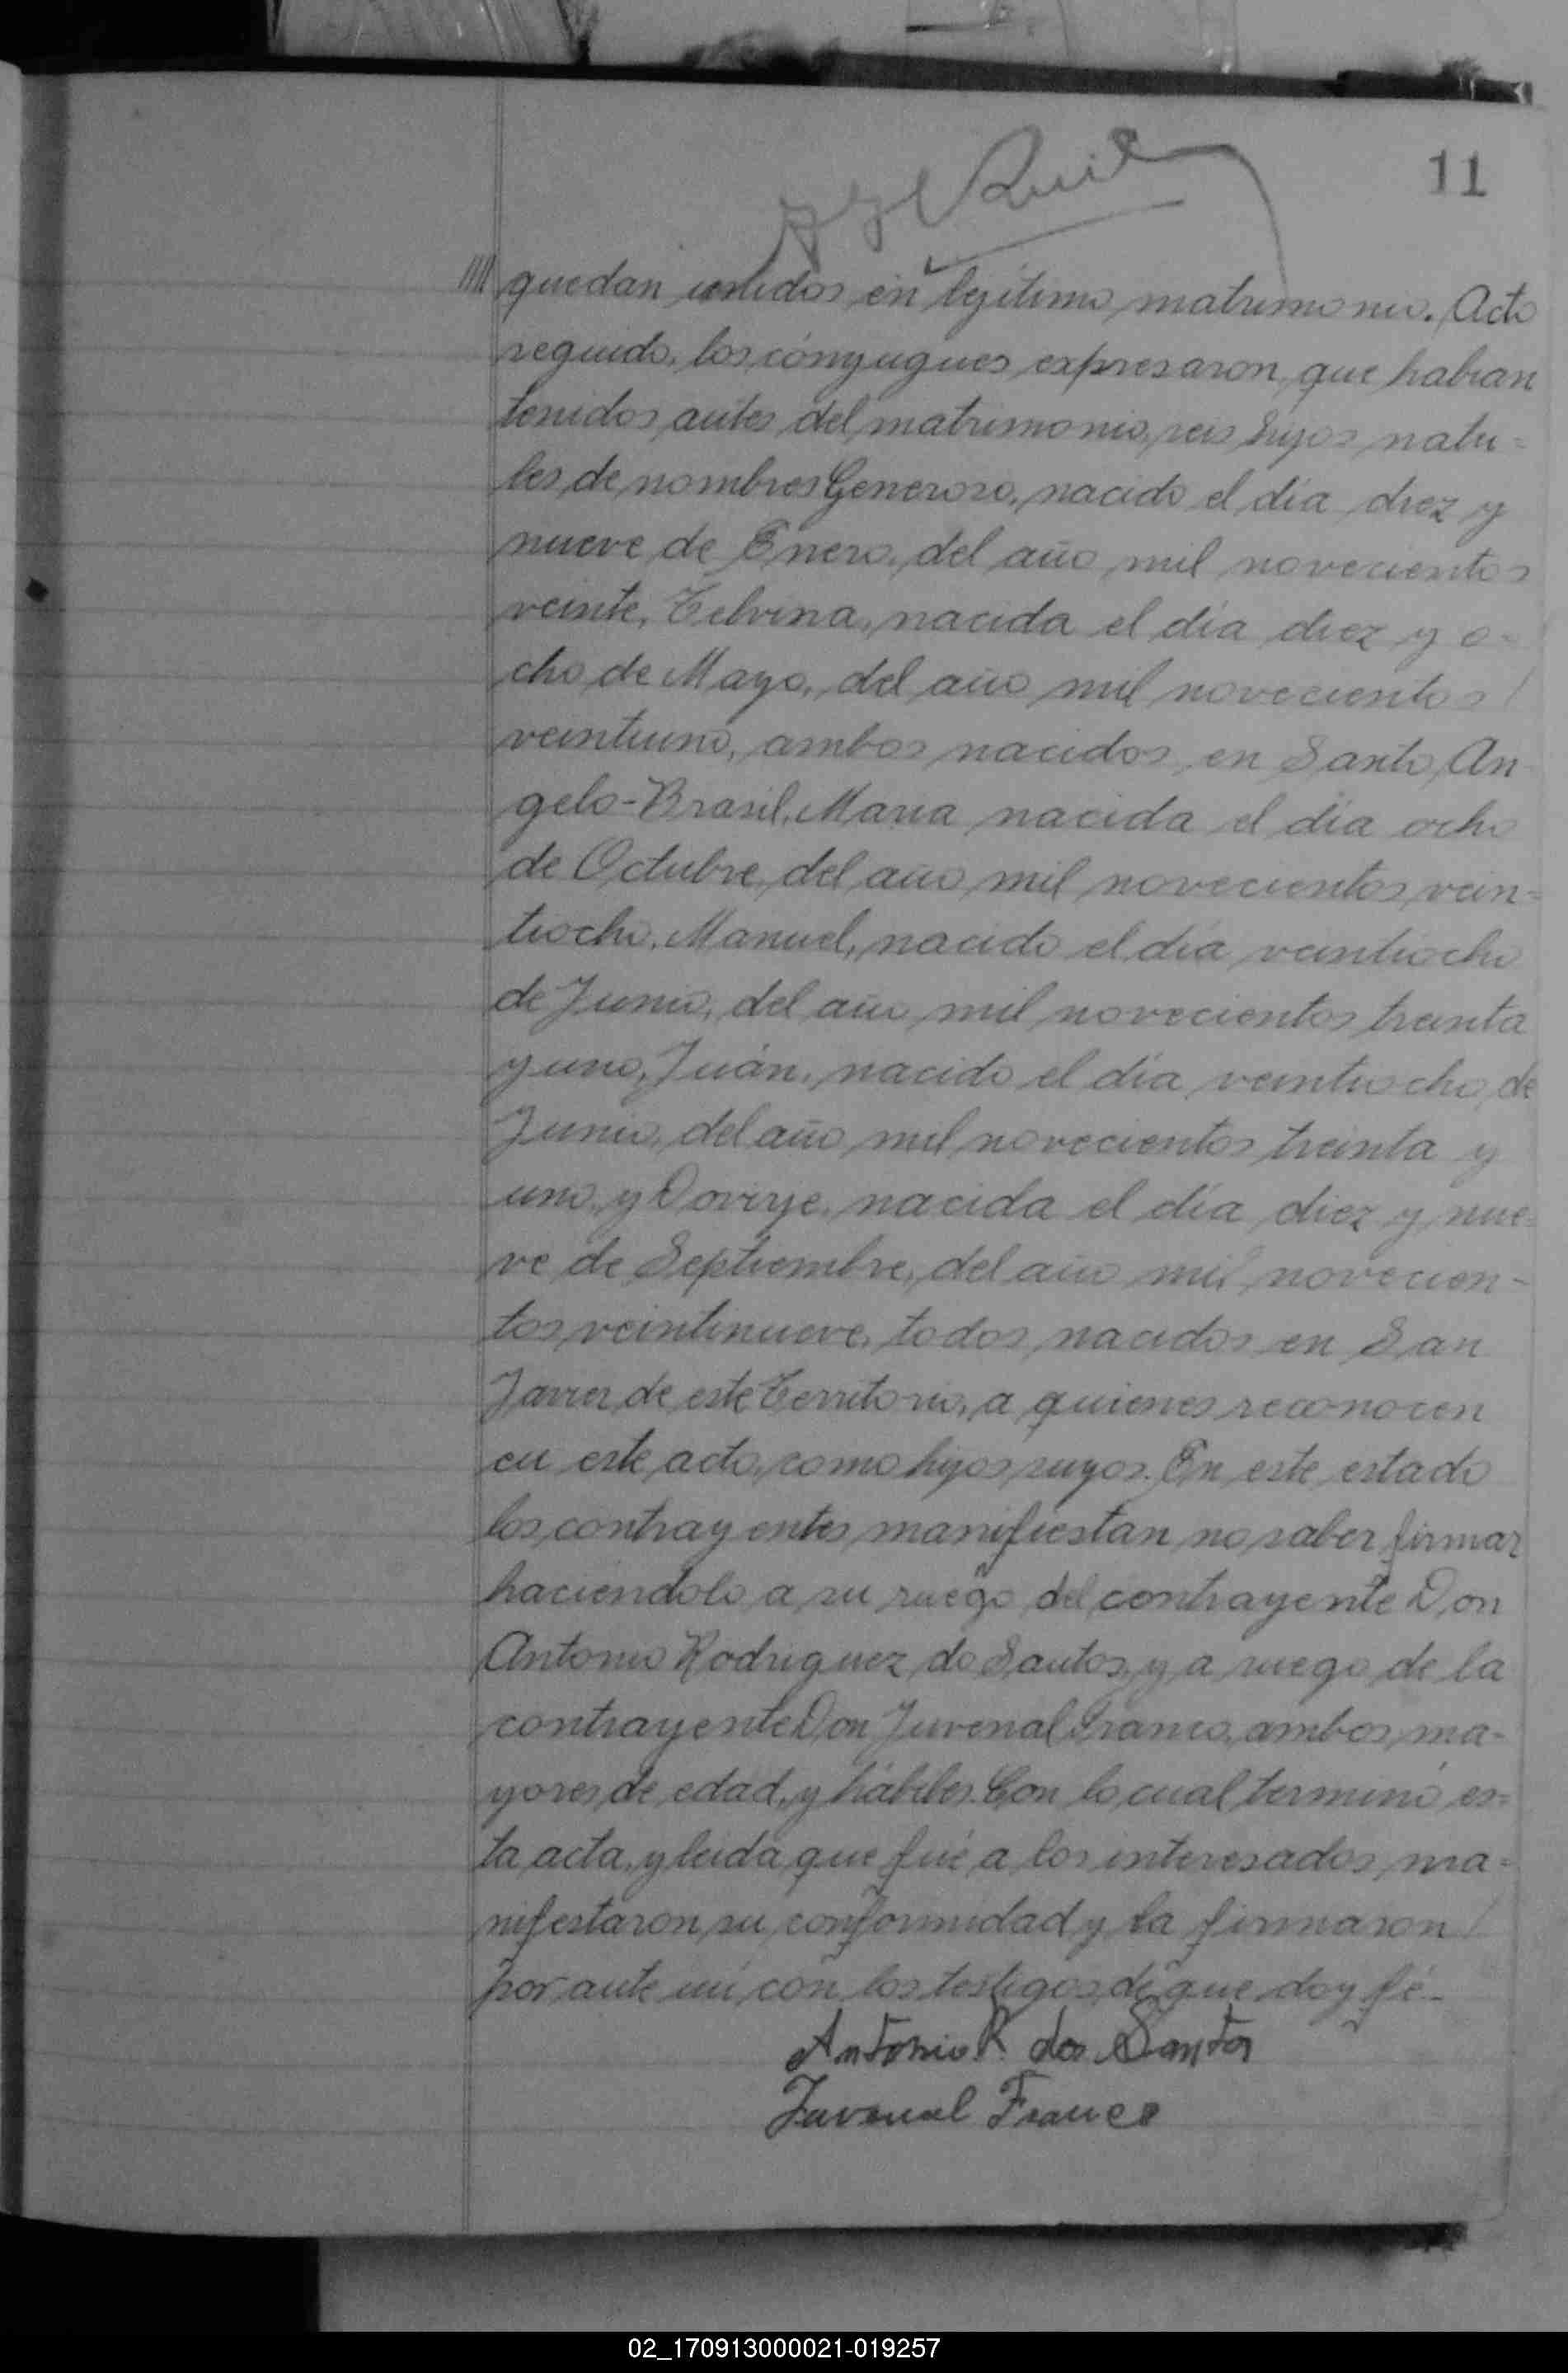 11
quedan unidos en legítimo matrimonio. Acto
seguido, los cónyugues expresaron, que habian
tenidos antes del matrimonio, seis hijos natu=
les de nombres Generoso, nacido el día diez y
nueve de Enero, del año mil novecientos
veinte, Telvina, nacida el día diez y o=
cho de Mayo, del año mil novecientos
veintiuno, ambos nacidos en Santo An
gelo-Brasil, Maria nacida el día ocho
de Octubre, del año mil novecientos vein=
tiocho, Manuel, nacido el día veintiocho
de Junio, del año mil novecientos treinta
y uno, Juán, nacido el día veintiocho de
Junio, del año mil novecientos treinta y
uno, y Dorirje, nacida el día diez y nue=
ve de Septiembre, del año mil novecien-
tos veintinueve, todos nacidos en San
Javier de este Territorio, a quienes reconocen
en este acto, como hijos suyos. En este estado
los contrayentes manifiestan no saber firmar
haciendolo a su ruego del contrayente Don
Antonio Rodriguez do Santos, y a ruego de la
contrayente Don Juvenal Franco, ambos ma-
yores de edad, y hábiles. Con lo cual terminó es=
ta acta, y leida que fué a los interesados, ma=
nifestaron su conformidad y la firmaron
por ante mi con los testigos de que doy fé_
Antonio R. dos Santos
Juvenal Franco
02_170913000021-019257